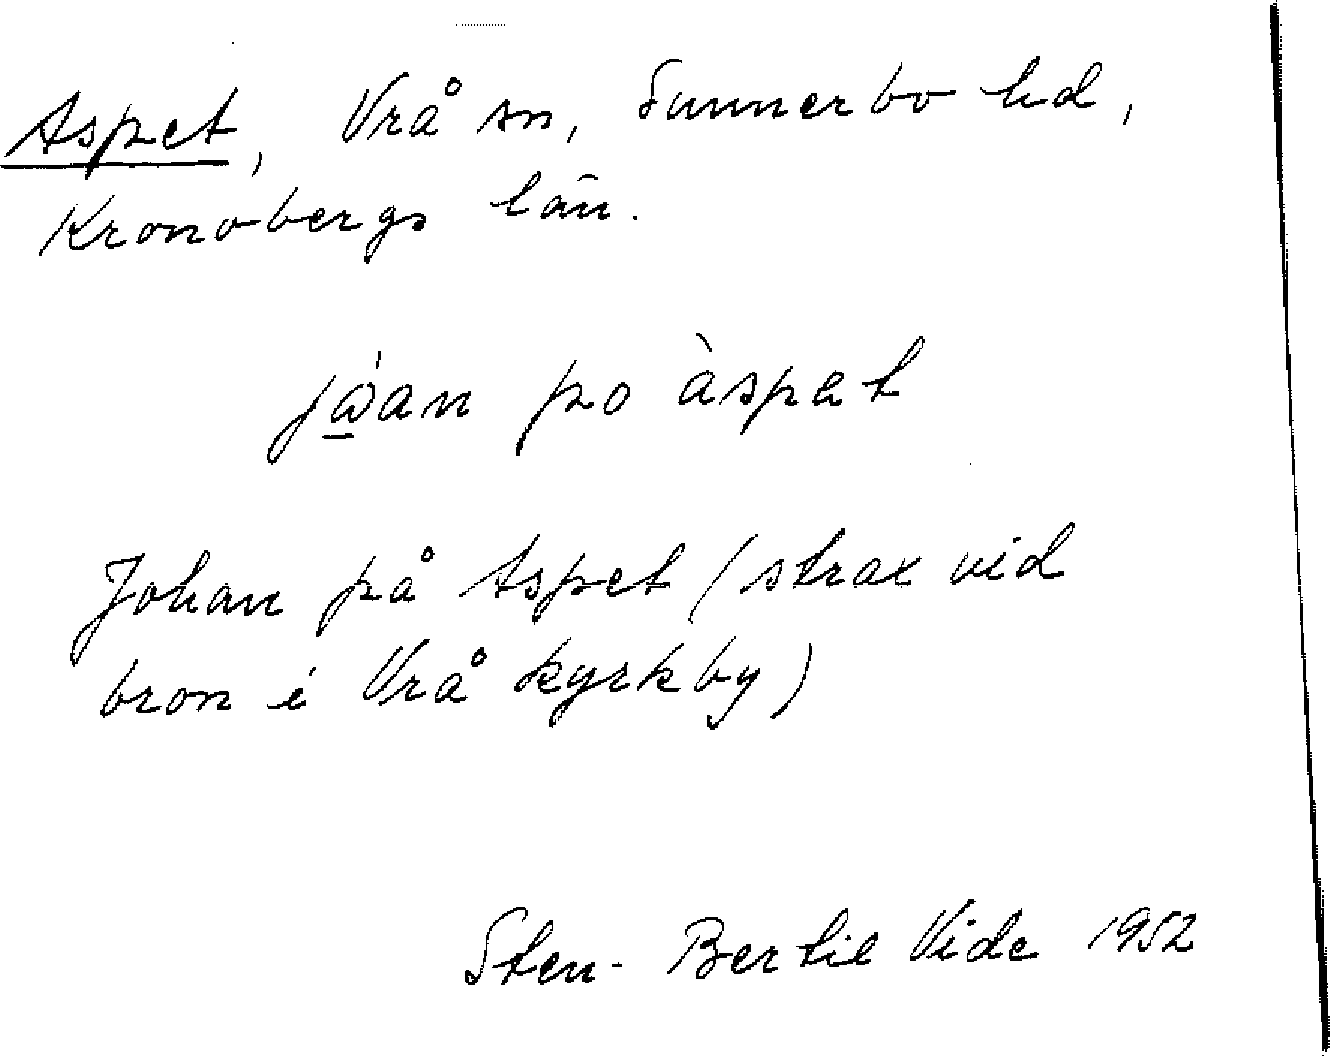 Aspet, Vrå sn, Sunnerbo hd,
Kronobergs län.
jo̲̍an po àspet
Johan på Aspet (strax vid
bron i Vrå kyrkby)
Sten-Bertil Vide 1952